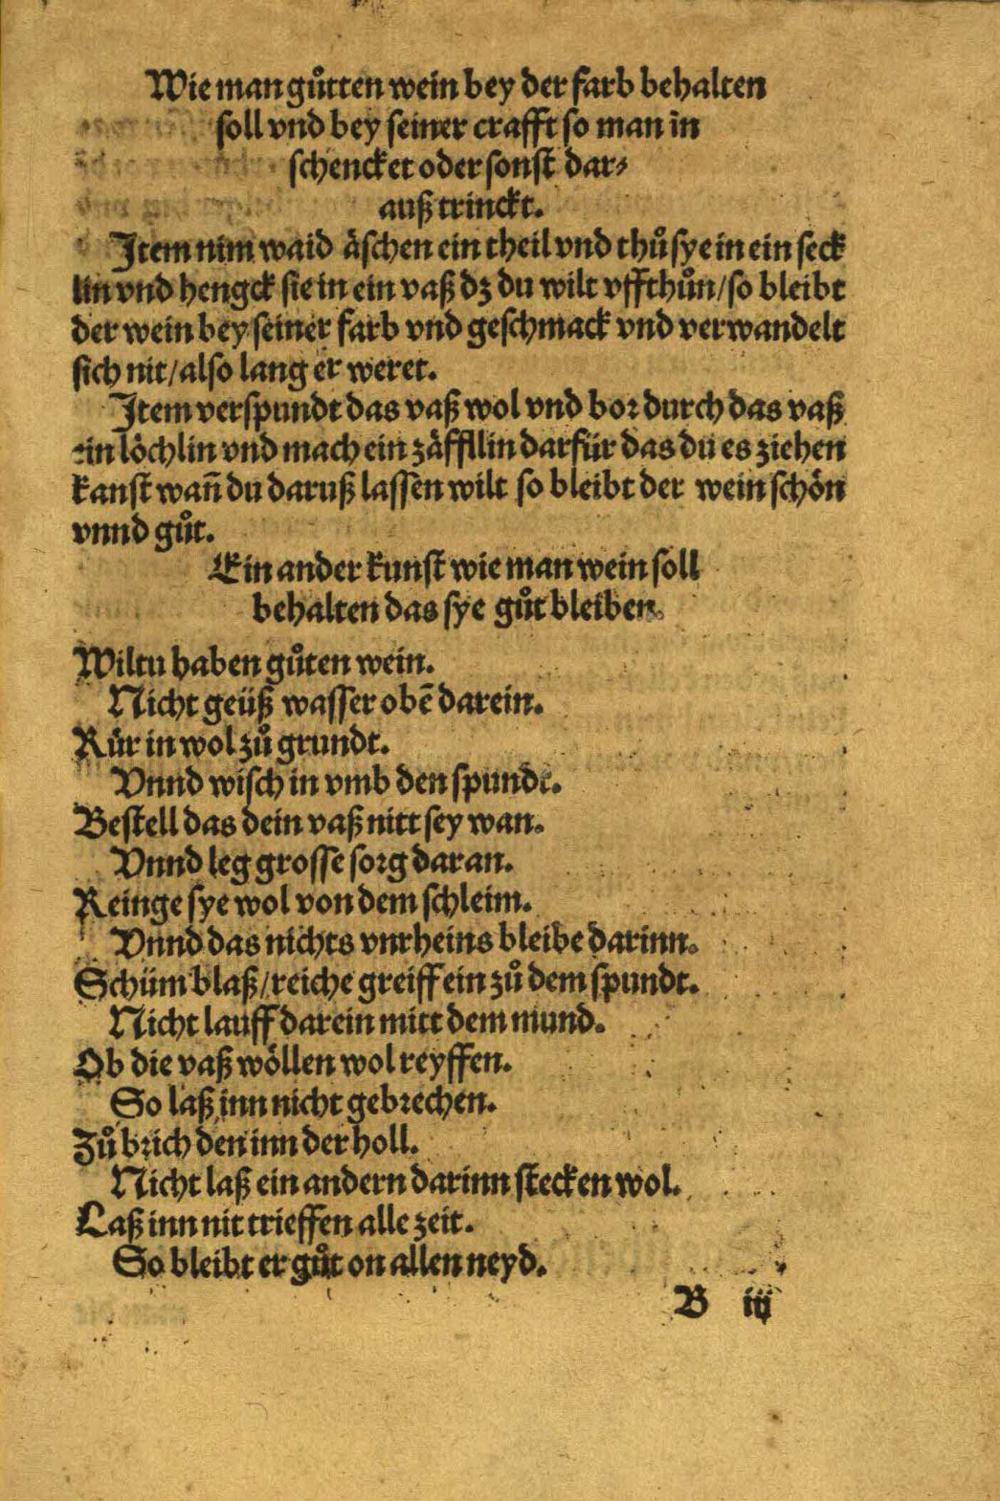 Wie man gůtten wein bey der farb behalten
soll vnd bey seiner crafft so man in
schencket oder sonst dar⸗
auß trinckt.
Item nim waid äschen ein theil vnd thů sye in ein seck
lin vnd hengck sie in ein vaß dz du wilt vffthůn/so bleibt
der wein bey seiner farb vnd geschmack vnd verwandelt
sich nit/also lang er weret.
Item verspundt das vaß wol vnd bor durch das vaß
ein löchlin vnd mach ein zäfflin darfür das du es ziehen
kanst wañ du daruß lassen wilt so bleibt der wein schön
vnnd gůt.
Ein ander kunst wie man wein soll
behalten das sye gůt bleiben.
Wiltu haben gůten wein.
Nicht geüß wasser obē darein.
Rür in wol zů grundt.
Vnnd wisch in vmb den spundt.
Bestell das dein vaß nitt sey wan.
Vnnd leg grosse sorg daran.
Reinge sye wol von dem schleim.
Vnnd das nichts vnrheins bleibe darinn.
Schüm blaß/reiche greiff ein zů dem spundt.
Nicht lauff darein mitt dem mund.
Ob die vaß wöllen wol reyffen.
So laß inn nicht gebrechen.
Zůbrich den inn der holl.
Nicht laß ein andern darinn stecken wol.
Laß inn nit trieffen alle zeit.
So bleibt er gůt on allen neyd.
B iij